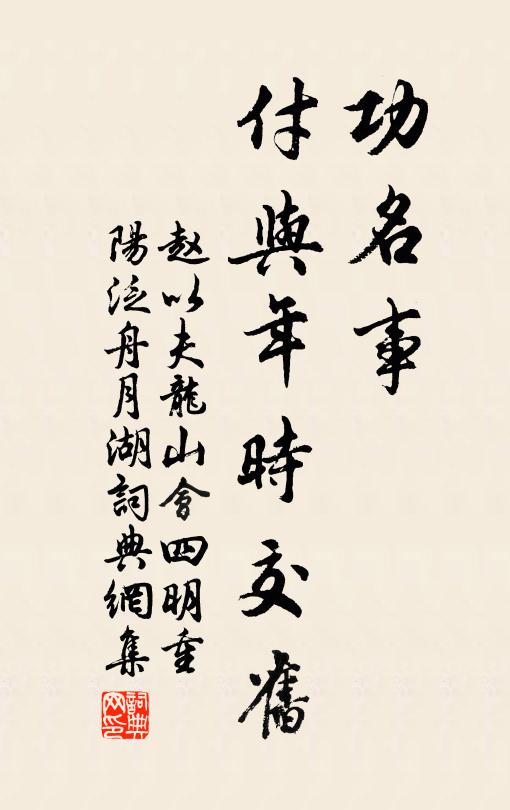 功名事
付與年時交舊
赵以夫龍山會四明重
陽泛舟月湖詞典網集
詞典网印